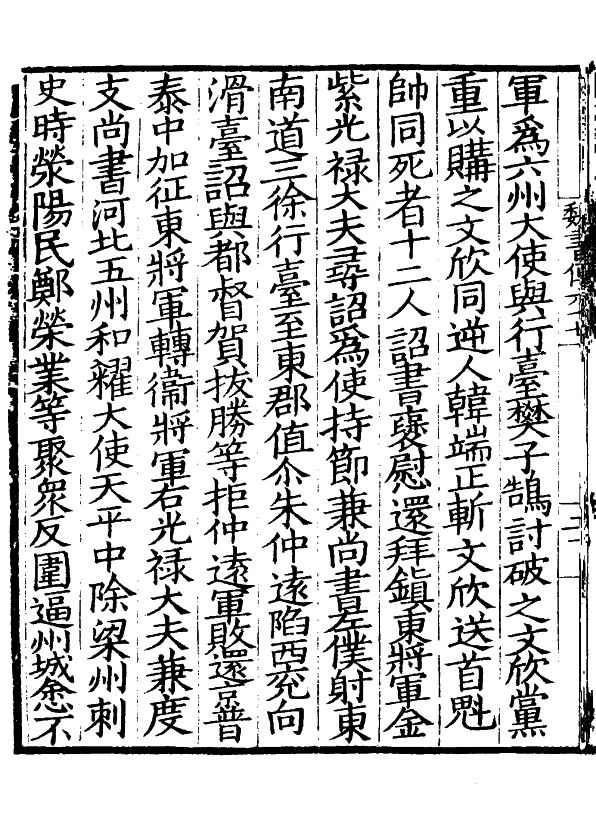 魏書傳六十七
軍爲六州大使與行臺樊子鵠討破之文欣黨
重以購之文欣同逆人韓端正斬文欣送首魁
帥同死者十二人詔書襃慰還拜鎮東將軍金
紫光禄大夫尋詔爲使持節兼尚書左僕射東
南道三徐行臺至東郡值尒朱仲遠陷西兖向
滑臺詔與都督賀拔勝等拒仲遠軍敗還京普
泰中加征東將軍轉衞將軍右光禄大夫兼度
支尚書河北五州和糴大使天平中除梁州刺
史時滎陽民鄭榮業等聚衆反圍逼州城悆不